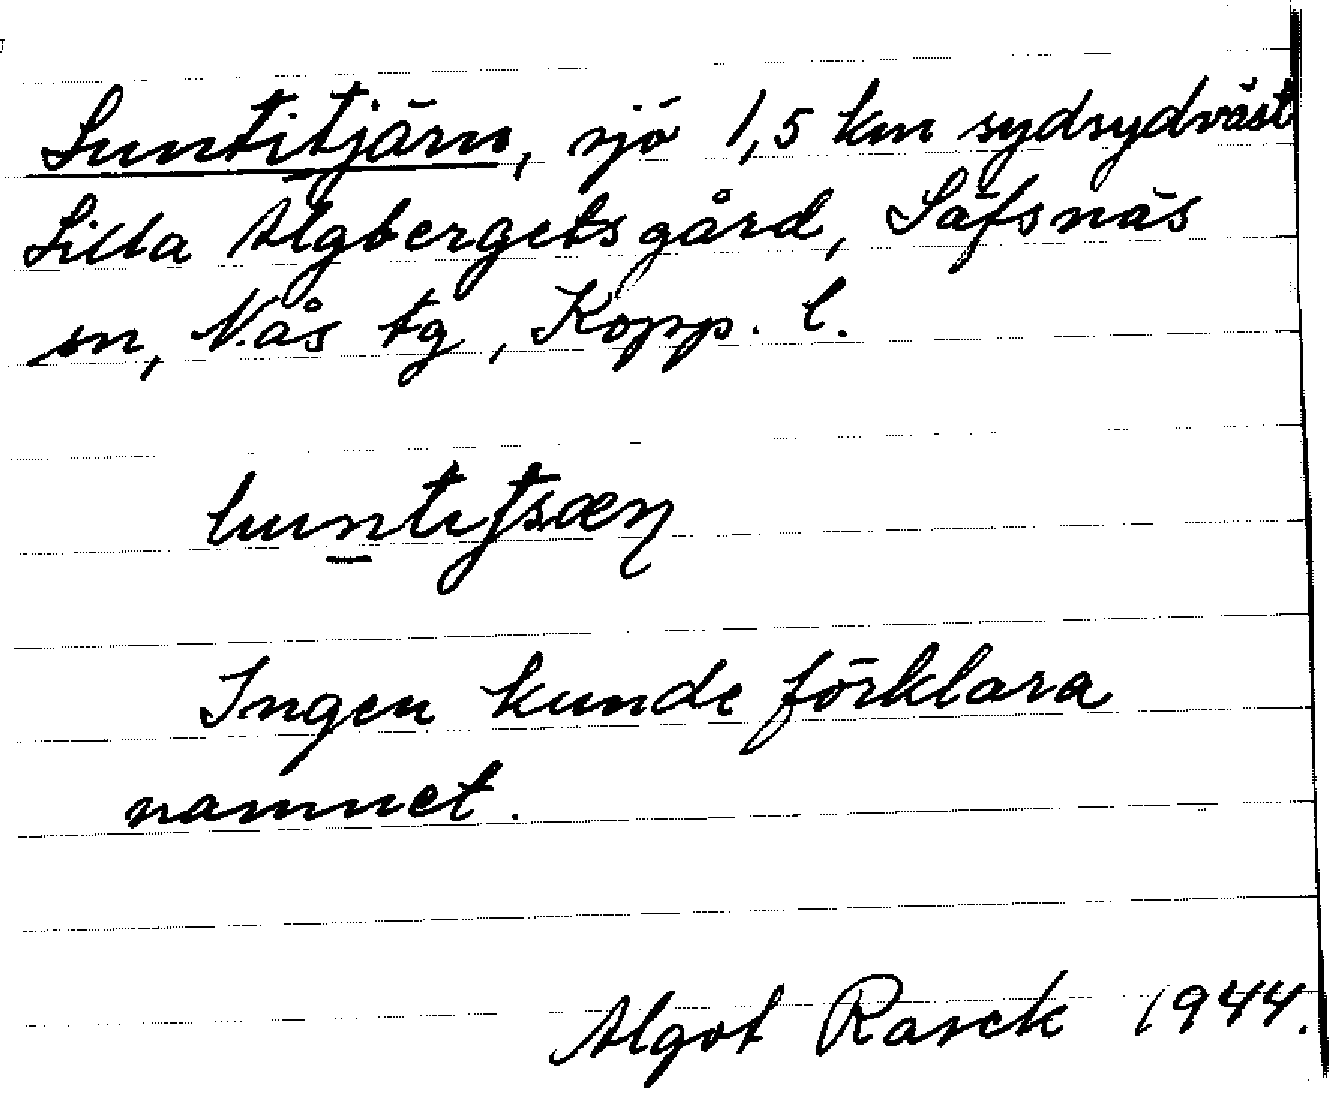 Luntitjärn, sjö 1,5 km sydsydväst
Lilla Älgbergets gård, Säfsnäs
sn, Nås tg, Kopp. l.
luntitsæn
Ingen kunde förklara
namnet.
Algot Rasck 1944.